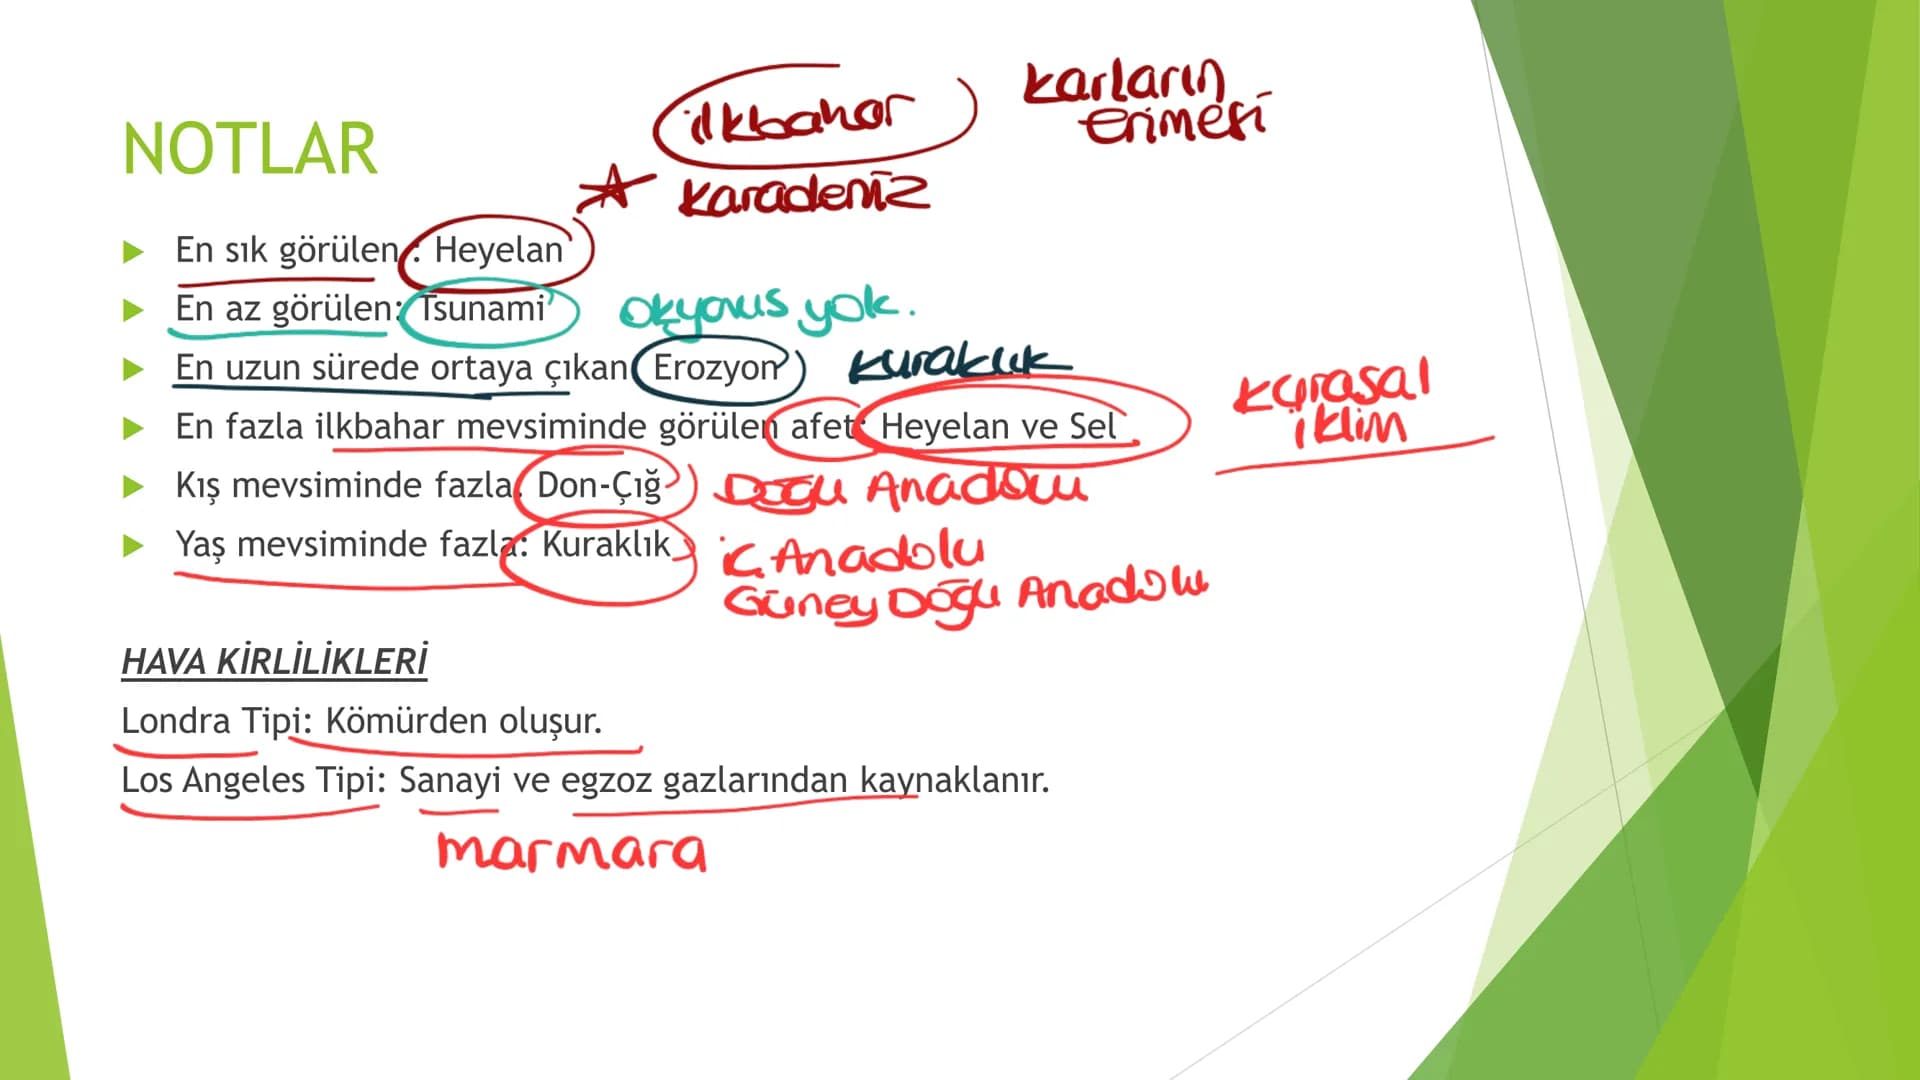 ilkbahar
karların
erimesi
NOTLAR
karadeniz
En sık görülen : Heyelan
En az görülen: Tsunami
okyanus yok.
En uzun sürede ortaya çıkan Erozyon
kuraklık
En fazla ilkbahar mevsiminde görülen afet: Heyelan ve Sel
iklim
Kış mevsiminde fazla: Don-Çığ
Doğu Anadolu
Yaş mevsiminde fazla: Kuraklık
iç Anadolu
Güney Doğu Anadolu
HAVA KİRLİLİKLERİ
Londra Tipi: Kömürden oluşur.
Los Angeles Tipi: Sanayi ve egzoz gazlarından kaynaklanır.
marmara